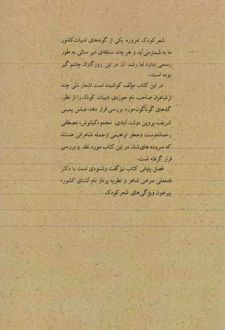 شعر کودک امروزه یکی از گونه‌های ادبیات کشور
ما به شمار می‌آید و هر چند سابقه‌ی دیر سالی به طور
رسمی ندارد اما رشد آن در این روزگاران چشم گیر
بوده است.
در این کتاب مؤلف کوشیده است اشعار تنی چند
از شاعران صاحب نام حوزه‌ی ادبیات کودک را از نظر
گاه‌های گوناگون مورد بررسی قرار دهد: عباس یمینی
شریف، پروین دولت آبادی، محمود کیانوش، مصطفی
رحماندوست و جعفر ابراهیمی از جمله شاعرانی هستند
که سروده های شان در این کتاب مورد نقد و بررسی
قرار گرفته است.
فصل پایانی کتاب نیز گفت و شنودی است با دکتر
شاعر و نظریه پرداز نام آشنای کشور؛
پیرامون ویژگی‌های شعر کودک